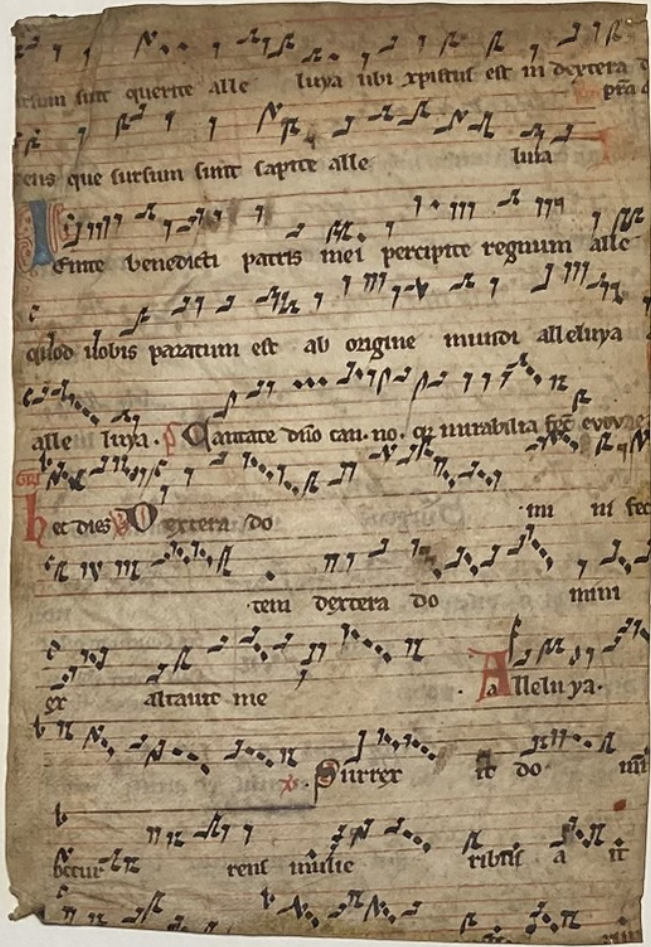 sursum sunt querite alle luya ubi xpistus est in dextera
dens que sursum sunt sapite alle luia
Venite benedicti patris mei percipite regnum alle
quod uobis paratum est ab origine mundi alleluya
alle luya. Cantate dño can. no. qr mirabilia fec̃ evovae
hec dies Dextera do mi ni fec
tem dextera do mini
ex altauit me Alleluya.
Surrex it do
rens mulie ribus a it